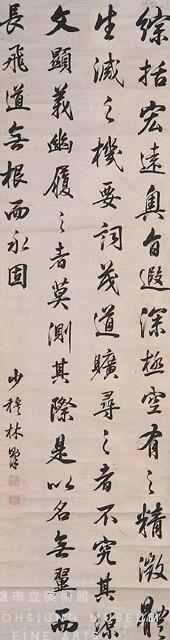 綜括宏遠奧旨遐深極空有之精微體
生滅之機要詞茂道曠尋之者不究其源
文顯義幽履之者莫測其際是以名無翼而
長飛道無根而永固
少穆林
雄市立美術館
OHSIUNG MUSEUM
FINE ARTS